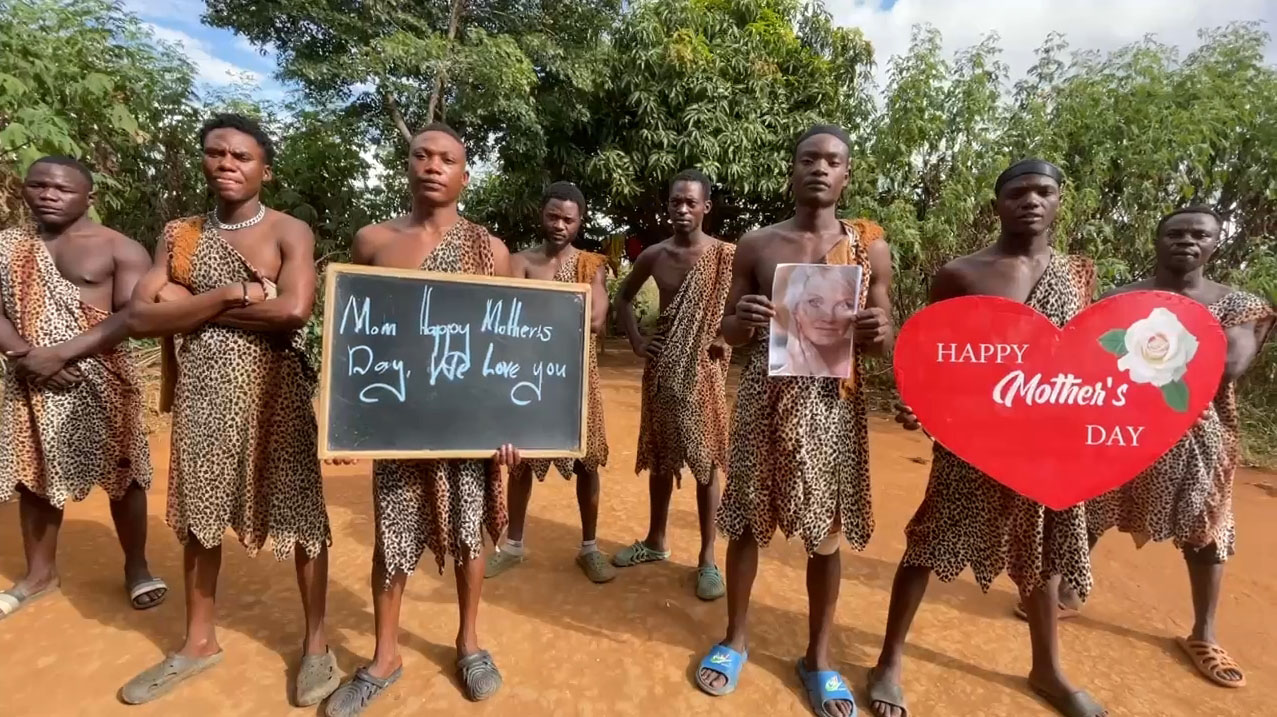 Mom Happy Mother's
Day, We Love you
HAPPY
Mother's
DAY